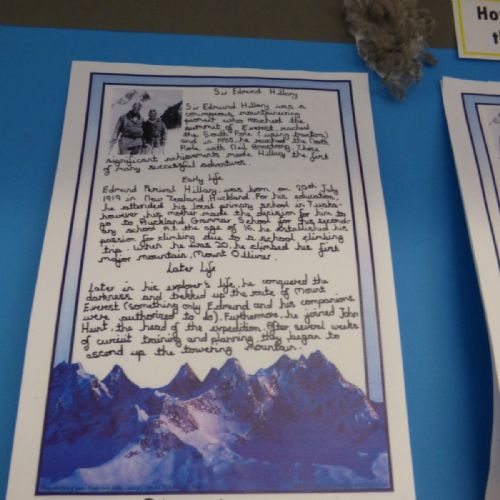 Ho
th
Sir Edmund Hillary
Sir Edmund Hillary was a
courageous mountaineering
pioneer who reached the
summit of Everest, reached
the South Pole (using tractors)
and in 1985, he reached the North
Pole with Neil Armstrong. These
significant achievements made Hillary the first
of many successful adventures.
Early Life
Edmund Percival Hillary, was born on 20th July
1919 in New Zealand, Auckland. For his education,
he attended his local primary school in Tuakau
however his mother made the decision for him to
go to Auckland Grammar School for his second-
ary school. At the age of 16, he established his
passion for climbing due to a school climbing
trip. When he was 20, he climbed his first
major mountain, Mount Ollivier.
Later Life
Later in his explorer's life, he conquered the
darkness and trekked up the route of Mount
Everest (something only Edmund and his companions
were authorised to do). Furthermore, he joined John
Hunt, the head of the expedition. After several weeks
of circuit training and planning, they began to
ascend up the towering mountain.